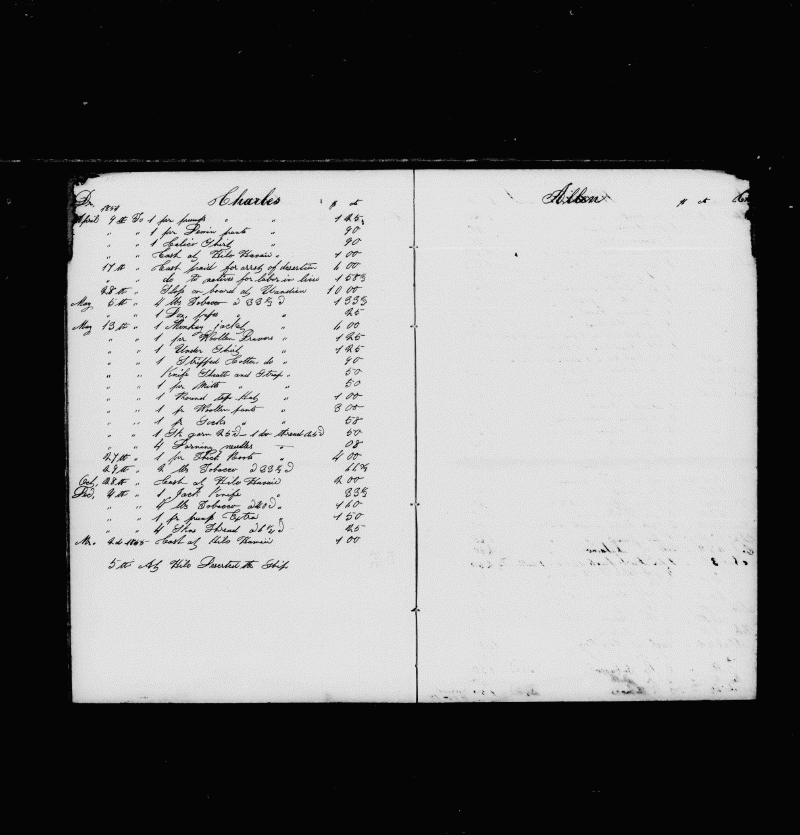 Dr. 1854 Charles $ ct
April 9th To 1 per pumps " " 1 25
" " 1 per Denim pants " 90
" " 1 Calico Shirt " 90
" " Cash at Hilo Hawaii " 1 00
17th " Cash paid for arrest of desertion 6 00
" " do to natives for labor in lieu 1 58⅓
28th " Slop on board at 10 00
May 5th " 4 lbs Tobacco a 33⅓ d 1 33⅓
" " 1 Doz. pipes " " 25
May 13th " 1 Monkey jacket " 6 00
" " 1 per Woollen Drawers " 1 25
" " 1 Under Shirt " 1 25
" " 1 Stripped Cotton do " 90
" " Knife Sheath and Strap " 50
" " 1 per Mitts " " 50
" " 1 Round top Hat " 1 00
" " 1 pr Woollen pants " 3 00
" " 1 pr Socks " " 58
" " 1 Sk yarn 25 d - 1 do thread 25 d 50
" " 4 Darning needles - 08
27th " 1 per Thick Boots " 4 00
29th " 2 lbs Tobacco a 33⅓ d 66⅔
Oct, 28th " Cash at Hilo Hawaii 2 00
Dec, 4th " 1 Jack Knife " 33⅓
" " 4 lbs Tobacco a 40 d " 1 60
" " 1 pr pumps Extra 1 50
" " 4 Skns Thread a 6¼ d 25
2d 1855 Cash at Hilo Hawaii 1 00
5th At Hilo Deserted the Ship
Allen $ ct